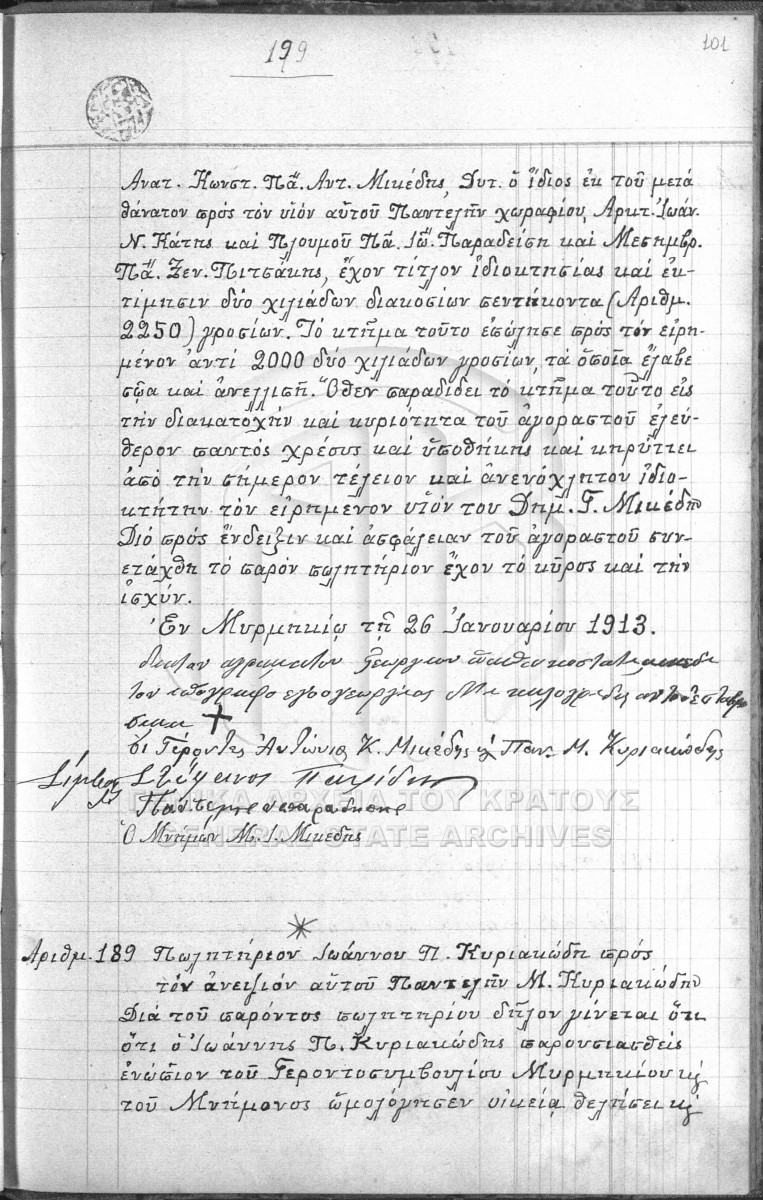 101
199
Ἀνατ. Κωνστ. Πᾶ. Ἀντ. Μικέδης, Δυτ. ὁ ἴδιος ἐκ τοῦ μετά
θάνατον πρός τόν υἱόν αὐτοῦ Παντελῆν χωραφίου, Ἀρκτ. Ἰωάν.
Ν. Κάτης καί Πλουμοῦ Πᾶ. Ἰῶ. Παραδείση καί Μεσημβρ.
Πᾶ. Ζεν. Πιτσάκης, ἔχον τίτλον ἰδιοκτησίας καί ἐκ-
τίμησιν δύο χιλιάδων διακοσίων πεντήκοντα (Ἀριθμ.
2250) γροσίων. Τό κτῆμα τοῦτο ἐπώλησε πρός τόν εἰρη-
μένον ἀντί 2000 δύο χιλιάδων γροσίων, τά ὁποῖα ἔλαβε
σῶα καί ἀνελλιπῆ. Ὅθεν παραδίδει τό κτῆμα τοῦτο εἰς
τήν διακατοχήν καί κυριότητα τοῦ ἀγοραστοῦ ἐλεύ-
θερον παντός χρέους καί ὑποθήκης καί κηρύττει
ἀπό τήν σήμερον τέλειον καί ἀνενόχλητον ἰδιο-
κτήτην τόν εἰρημένον υἱόν του Δημ. Γ. Μικέδην
Διό πρός ἔνδειξιν καί ἀσφάλειαν τοῦ ἀγοραστοῦ συν-
ετάχθη τό παρόν πωλητήριον ἔχον τό κῦρος καί τήν
ἰσχύν.
Ἐν Μυρμηκίῳ τῇ 26 Ἰανουαρίου 1913.
αγραματου Γεωργιου
τον υπογραφο εγο ο γεωργιος
✝
Οἱ Γέροντες Ἀντώνιος Κ. Μικέδης κ Παν. Μ. Κυριακώδης
Στέφανος Παυλίδης
Ὁ Μνήμων Μ. Ι. Μικέδης
ΓΕΝΙΚΑ ΑΡΧΕΙΑ ΤΟΥ ΚΡΑΤΟΥΣ
GENERAL STATE ARCHIVES
Ἀριθμ. 189 Πωλητήριον Ἰωάννου Π. Κυριακώδη πρός
τόν ἀνειψιόν αὐτοῦ Παντελῆν Μ. Κυριακώδην
Διά τοῦ παρόντος πωλητηρίου δῆλον γίνεται ὅτι
ὅτι ὁ Ἰωάννης Π. Κυριακώδης παρουσιασθείς
ἐνώπιον τοῦ Γεροντοσυμβουλίου Μυρμηκίου κ
τοῦ Μνήμονος ὡμολόγησεν οἰκείᾳ θελήσει κ